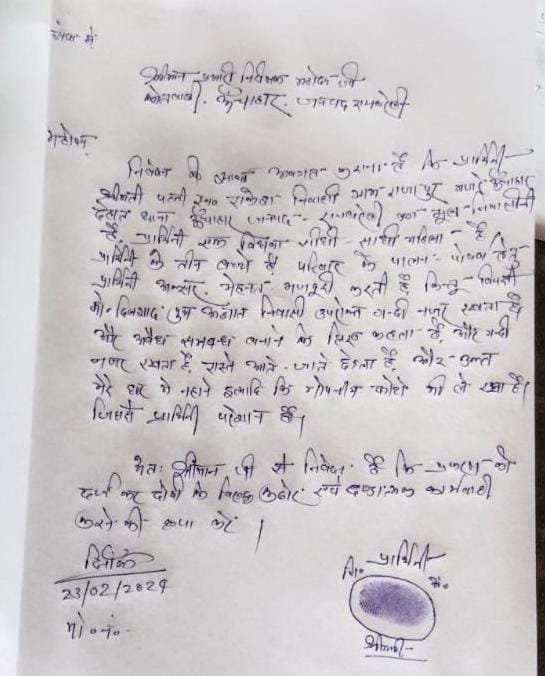 सेवा में
श्रीमान प्रभारी निरीक्षक महोदय जी
कोतवाली. ऊँचाहार. जनपद रायबरेली
महोदय,
निवेदन के साथ अवगत कराना है कि प्रार्थिनी
श्रीमती पत्नी स्व० राकेश निवासी ग्राम राजापुर मजरे ऊँचाहार
देहात थाना ऊँचाहार जनपद - रायबरेली का मूल-निवासीनी
है प्रार्थिनी एक विधवा सीधी - साधी महिला - है
प्रार्थिनी के तीन बच्चे है परिवार के पालन - पोषण हेतु
प्रार्थिनी अक्सर मेहनत मजदूरी करती है किन्तु विपक्षी
मो. दिलशाद पुत्र निवासी उपरोक्त गन्दी नजर रखता है
और अवैध सम्बन्ध बनाने के लिए कहता है, और गन्दी
नजर रखता है, रास्ते आते - जाते छेड़ता है, और - उक्त
मेरे घर मे नहाने इत्यादि कि गोपनीय फोटो भी ले रखा है।
जिससे प्रार्थिनी परेशान है।
अतः श्रीमान जी से निवेदन है कि प्रकरण को
दर्ज कर दोषी के विरूद्ध कठोर एवं दण्डात्मक कार्यवाही
करने की कृपा करें।
दिनाँक
23/02/2024
मो०नं०-
प्रार्थिनी
नि० अं०
श्रीमती